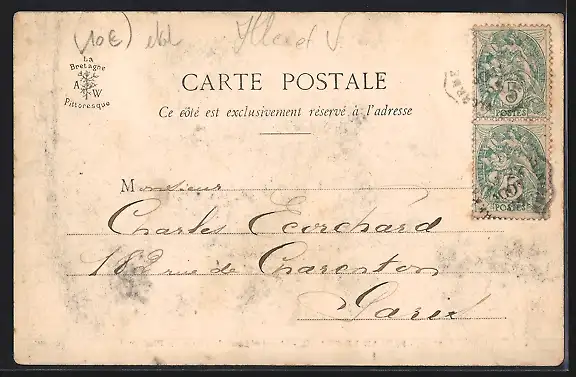 (10€) ebl Ille et V.
La
Bretagne
A W
Pittoresque
CARTE POSTALE
Ce côté est exclusivement réservé à l'adresse
5
POSTES
5
POSTES
Monsieur
Charles Ecorchard
182 rue de Charenton
Paris